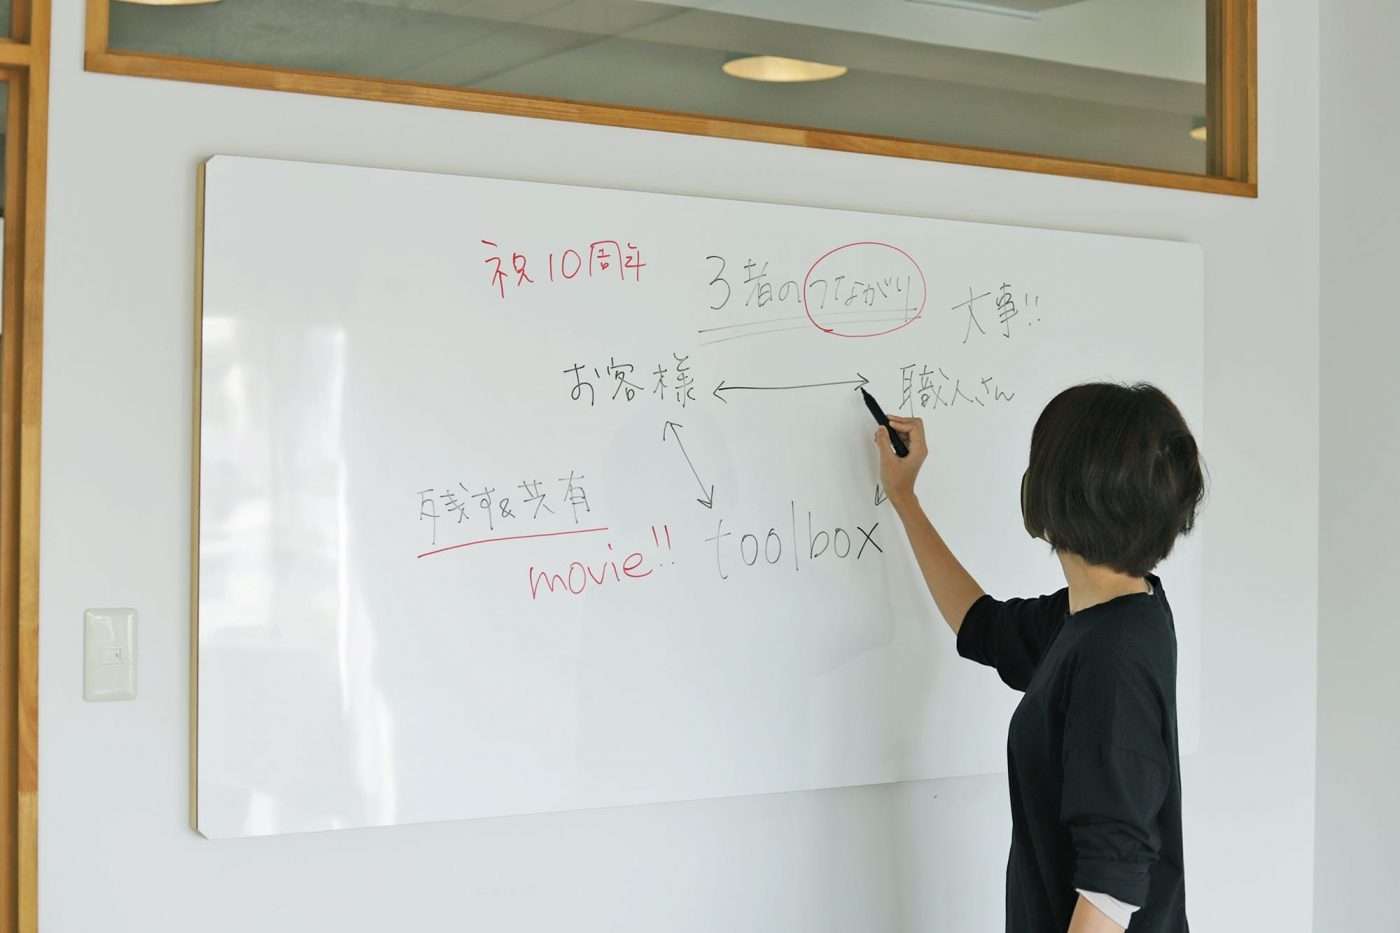 祝10周年
3者のつながり 大事!!
お客様 職人さん
残す&共有
movie!! toolbox